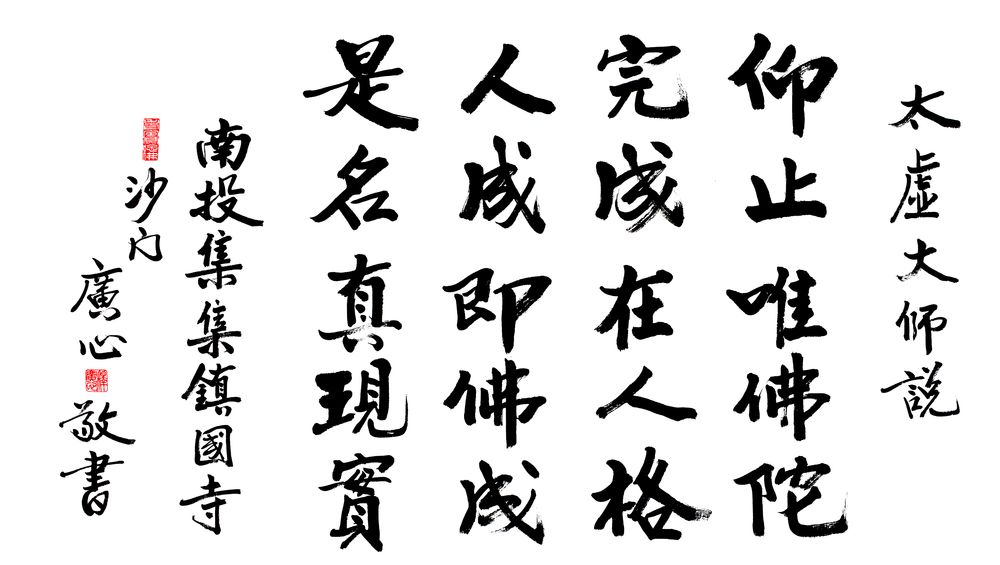 太虛大师說
仰止唯佛陀
完成在人格
人成即佛成
是名真現實
南投集集鎮國寺
沙门
廣心
敬書